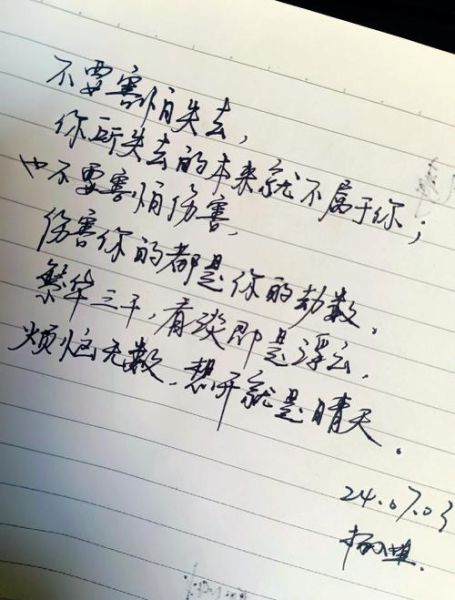 不要害怕失去，
你所失去的本来就不属于你；
也不要害怕伤害，
伤害你的都是你的劫数。
繁华三千，看淡即是浮云，
烦恼无数，想开就是晴天。
24.07.03